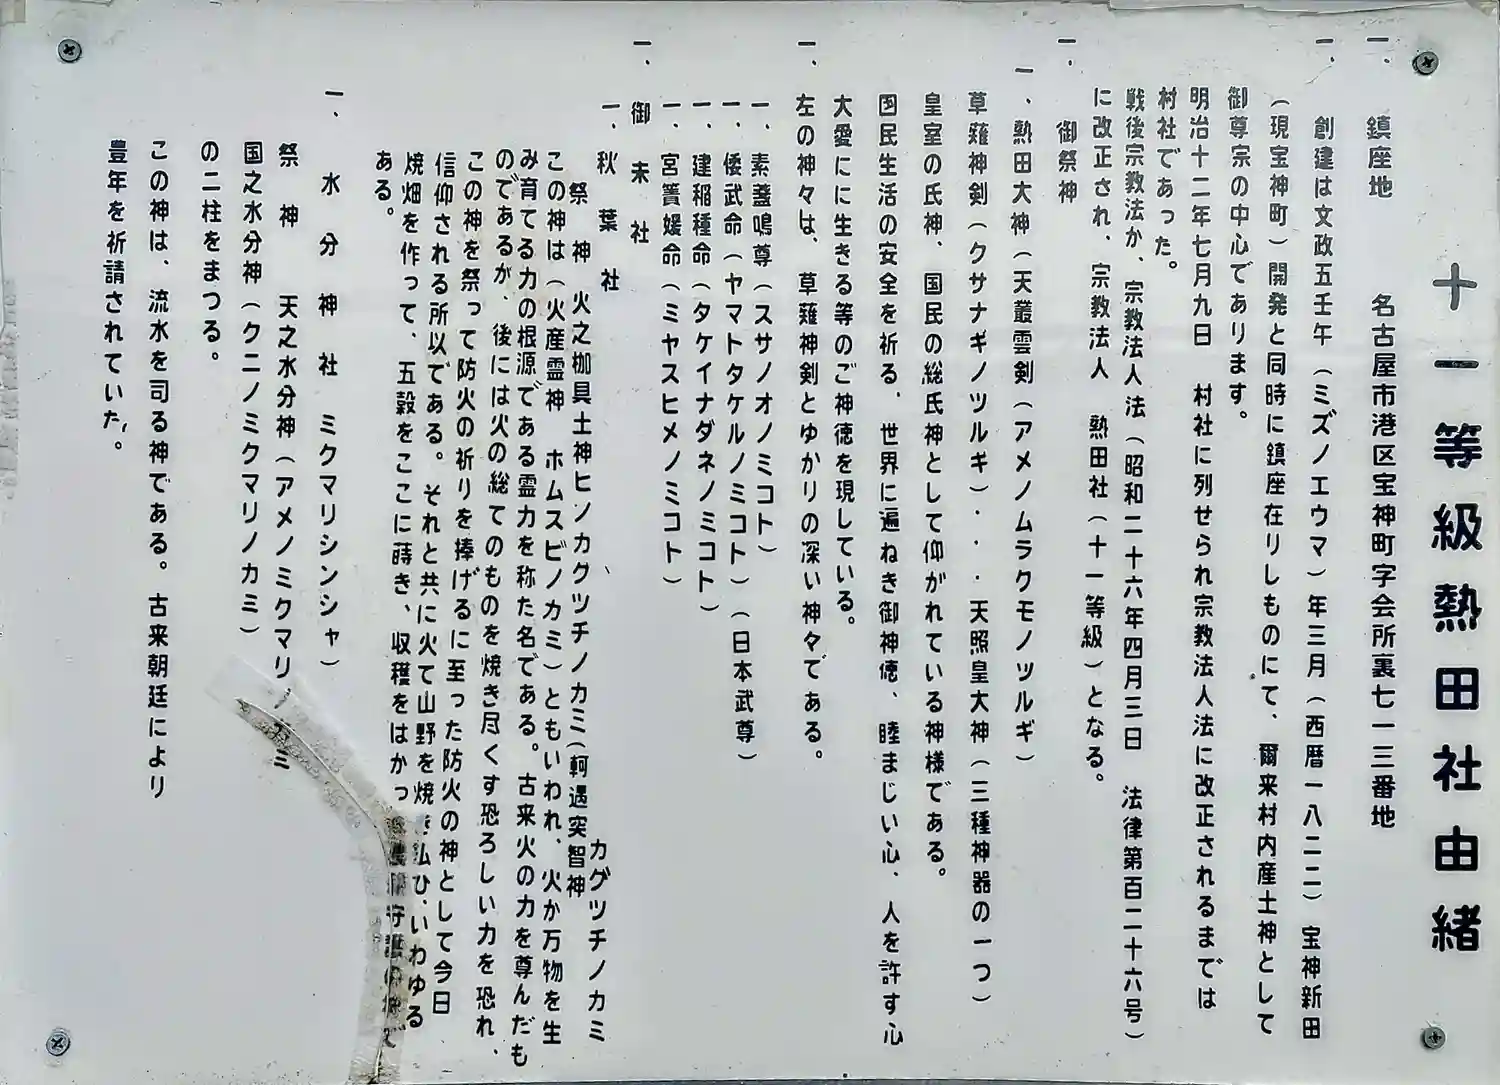 十一等級熱田社由緒
一、鎮座地　名古屋市港区宝神町字会所裏七一三番地
一、創建は文政五壬午（ミズノエウマ）年三月（西暦一八二二）宝神新田
（現宝神町）開発と同時に鎮座在りしものにて、爾来村内産土神として
御尊宗の中心であります。
明治十二年七月九日　村社に列せられ宗教法人法に改正されるまでは
村社であった。
戦後宗教法か、宗教法人法（昭和二十六年四月三日　法律第百二十六号）
に改正され、宗教法人　熱田社（十一等級）となる。
一、御祭神
一、熱田大神（天叢雲剣（アメノムラクモノツルギ）
草薙神剣（クサナギノツルギ）・・・天照皇大神（三種神器の一つ）
皇室の氏神、国民の総氏神として仰がれている神様である。
国民生活の安全を祈る、世界に遍ねき御神徳、睦まじい心、人を許す心
大愛にに生きる等のご神徳を現している。
左の神々は、草薙神剣とゆかりの深い神々である。
一、素盞鳴尊（スサノオノミコト）
一、倭武命（ヤマトタケルノミコト）（日本武尊）
一、建稲種命（タケイナダネノミコト）
一、宮簀媛命（ミヤスヒメノミコト）
一、御末社
一、秋葉社
カグツチノカミ
祭神　火之枷具土神ヒノカグツチノカミ（軻遇突智神
この神は（火産霊神　ホムスビノカミ）ともいわれ、火か万物を生
み育てる力の根源である霊力を称た名である。古来火の力を尊んだも
のであるが、後には火の総てのものを焼き尽くす恐ろしい力を恐れ、
この神を祭って防火の祈りを捧げるに至った防火の神として今日
信仰される所以である。それと共に火て山野を焼き払ひ、いわゆる
焼畑を作って、五穀をここに蒔き、収穫をはかっ
ある。
一、水分神社　ミクマリシンシャ）
祭神　天之水分神（アメノミクマリノカミ
国之水分神（クニノミクマリノカミ）
の二柱をまつる。
この神は、流水を司る神である。古来朝廷により
豊年を祈請されていた。